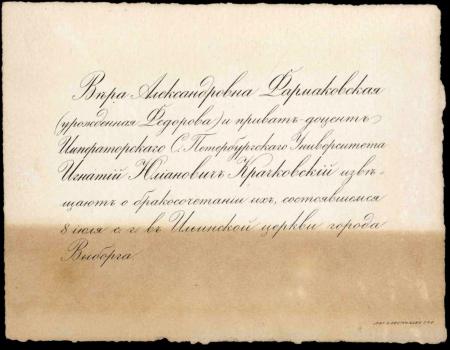 Вѣра Александровна Фармаковская
(урожденная Федорова) и приватъ-доцентъ
Императорскаго С. Петербургскаго Университета
Игнатій Юліановичъ Крачковскій извѣ-
щаютъ о бракосочетаніи ихъ, состоявшемся
8 іюля с. г. въ Ильинской церкви города
Выборга.